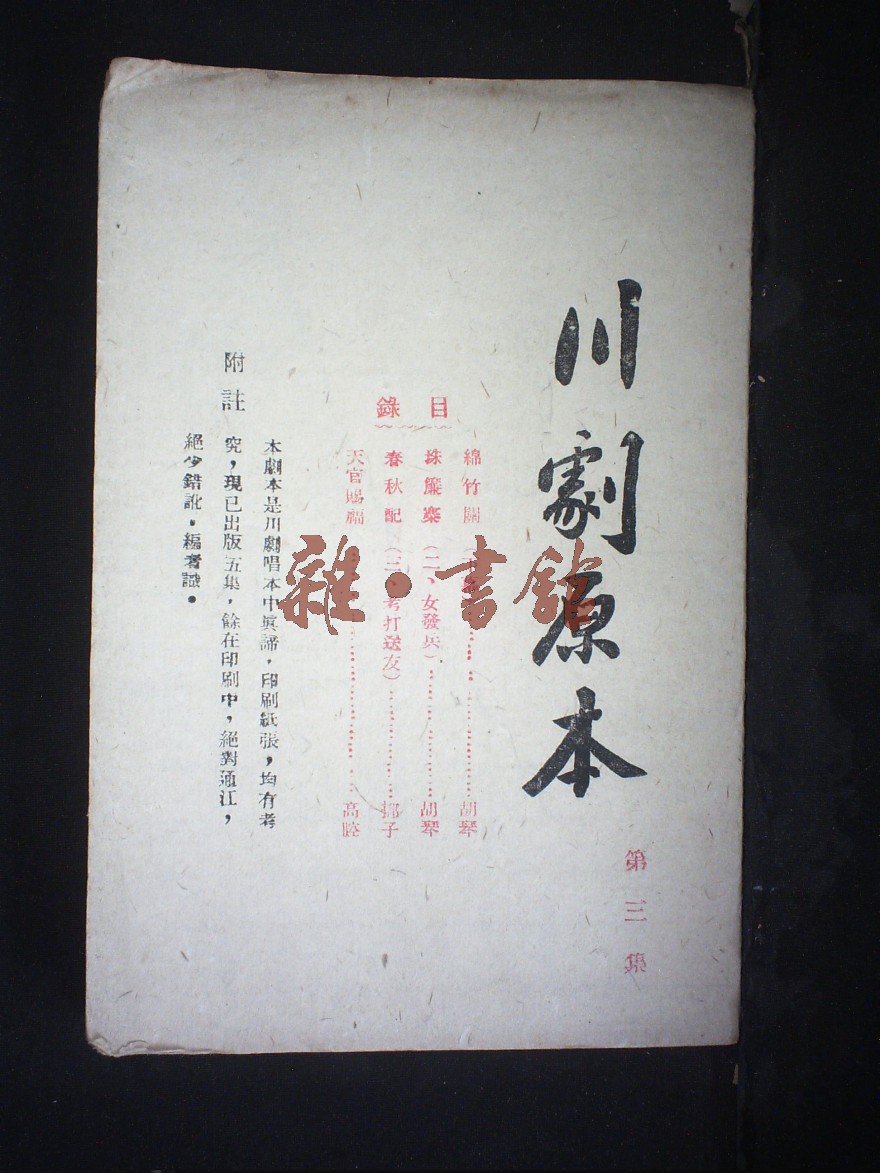 川劇原本
第三集
目錄
綿竹關
胡琴
珠簾寨(二、女發兵)
胡琴
春秋配(三、考打送友)
梆子
天官賜福
高腔
附註
本劇本是川劇唱本中眞諦，印刷紙張，均有考
究，現已出版五集，餘在印刷中，絕對通江，
絕少錯訛。編者識。
雜·書館